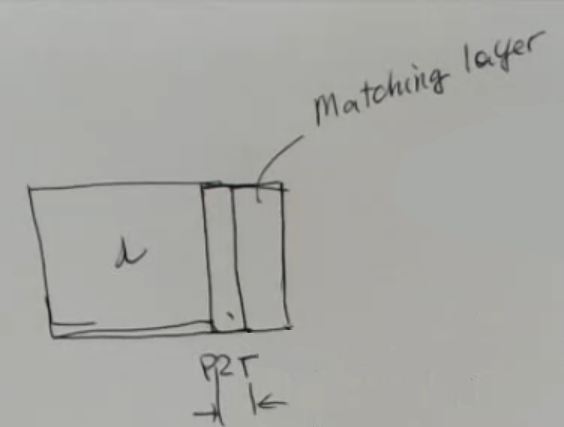 Matching layer
PZT